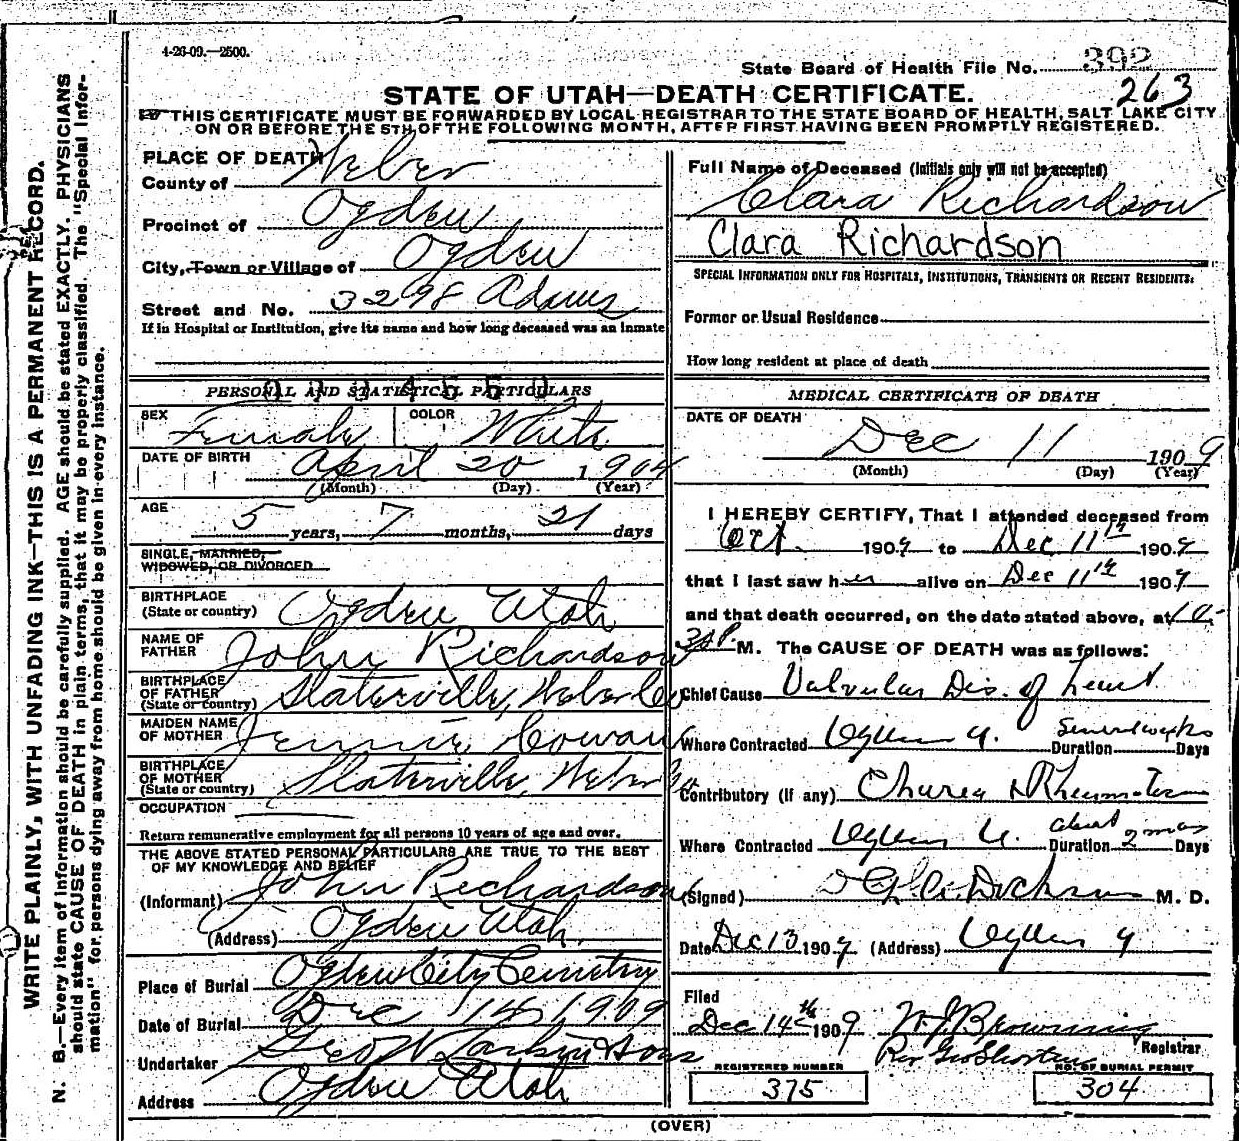 4-26-09.—2500.
State Board of Health File No. 392
263
STATE OF UTAH—DEATH CERTIFICATE.
THIS CERTIFICATE MUST BE FORWARDED BY LOCAL REGISTRAR TO THE STATE BOARD OF HEALTH, SALT LAKE CITY
ON OR BEFORE THE 5TH OF THE FOLLOWING MONTH, AFTER FIRST HAVING BEEN PROMPTLY REGISTERED.
WRITE PLAINLY, WITH UNFADING INK—THIS IS A PERMANENT RECORD.
N. B.—Every item of information should be carefully supplied. AGE should be stated EXACTLY. PHYSICIANS
should state CAUSE OF DEATH in plain terms, that it may be properly classified. The "Special Infor-
mation" for persons dying away from home should be given in every instance.
PLACE OF DEATH
County of Weber
Precinct of Ogden
City, Town or Village of Ogden
Street and No. 3298 Adams
If in Hospital or Institution, give its name and how long deceased was an inmate
PERSONAL AND STATISTICAL PARTICULARS
SEX Female COLOR White
DATE OF BIRTH April 20 1904
(Month) (Day) (Year)
AGE 5 years, 7 months, 21 days
SINGLE, MARRIED,
WIDOWED, OR DIVORCED
BIRTHPLACE
(State or country) Ogden Utah
NAME OF
FATHER John Richardson
BIRTHPLACE
OF FATHER
(State or country) Slaterville, Weber Co
MAIDEN NAME
OF MOTHER Jennie Cowan
BIRTHPLACE
OF MOTHER
(State or country) Slaterville, Weber Co
OCCUPATION
Return remunerative employment for all persons 10 years of age and over.
THE ABOVE STATED PERSONAL PARTICULARS ARE TRUE TO THE BEST
OF MY KNOWLEDGE AND BELIEF
(Informant) John Richardson
(Address) Ogden Utah.
Place of Burial Ogden City Cemetry
Date of Burial Dec 14 1909
Undertaker Geo W Larkin & Sons
Address Ogden Utah
Full Name of Deceased (Initials only will not be accepted)
Clara Richardson
Clara Richardson
SPECIAL INFORMATION ONLY FOR HOSPITALS, INSTITUTIONS, TRANSIENTS OR RECENT RESIDENTS.
Former or Usual Residence
How long resident at place of death
MEDICAL CERTIFICATE OF DEATH
DATE OF DEATH
Dec 11 1909
(Month) (Day) (Year)
I HEREBY CERTIFY, That I attended deceased from
Oct. 1909 to Dec 11th 1909
that I last saw her alive on Dec 11th 1909
and that death occurred, on the date stated above, at 10-
30 P. M. The CAUSE OF DEATH was as follows:
Chief Cause Valvular Dis. of heart
Where Contracted Ogden U. Duration Several weeks Days
Contributory (if any) Chorea & Rheumatism
Where Contracted Ogden U. Duration about 2 mos Days
(Signed) Dickson M. D.
Date Dec 13 1909 (Address) Ogden U
Filed
Dec 14th 1909 W J Browning
Registrar
Per Geo Shorten
REGISTERED NUMBER
375
NO. OF BURIAL PERMIT
304
(OVER)